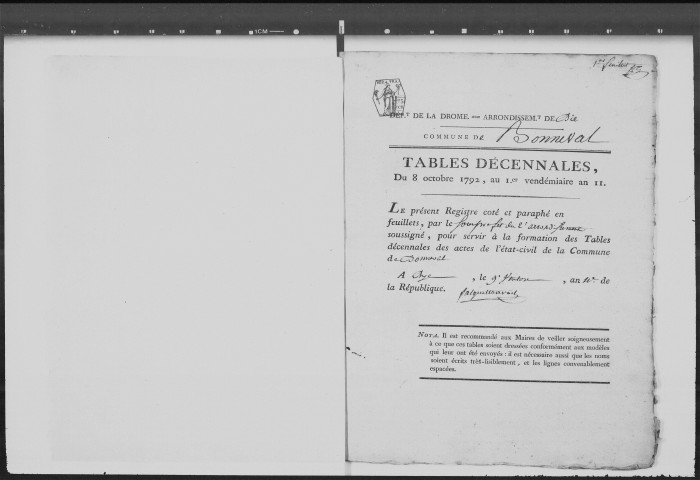 1er feuillet
DÉP.T DE LA DROME. — ARRONDISSEM.T DE Die
COMMUNE DE Bonneval
TABLES DÉCENNALES,
Du 8 octobre 1792, au 1.er vendémiaire an 11.
LE présent Registre coté et paraphé en
feuillets, par le
soussigné, pour servir à la formation des Tables
décennales des actes de l'état-civil de la Commune
de Bonneval
A Dye , le 9 , an 11e de
la République.
NOTA. Il est recommandé aux Maires de veiller soigneusement
à ce que ces tables soient dressées conformément aux modèles
qui leur ont été envoyés : il est nécessaire aussi que les noms
soient écrits très-lisiblement, et les lignes convenablement
espacées.